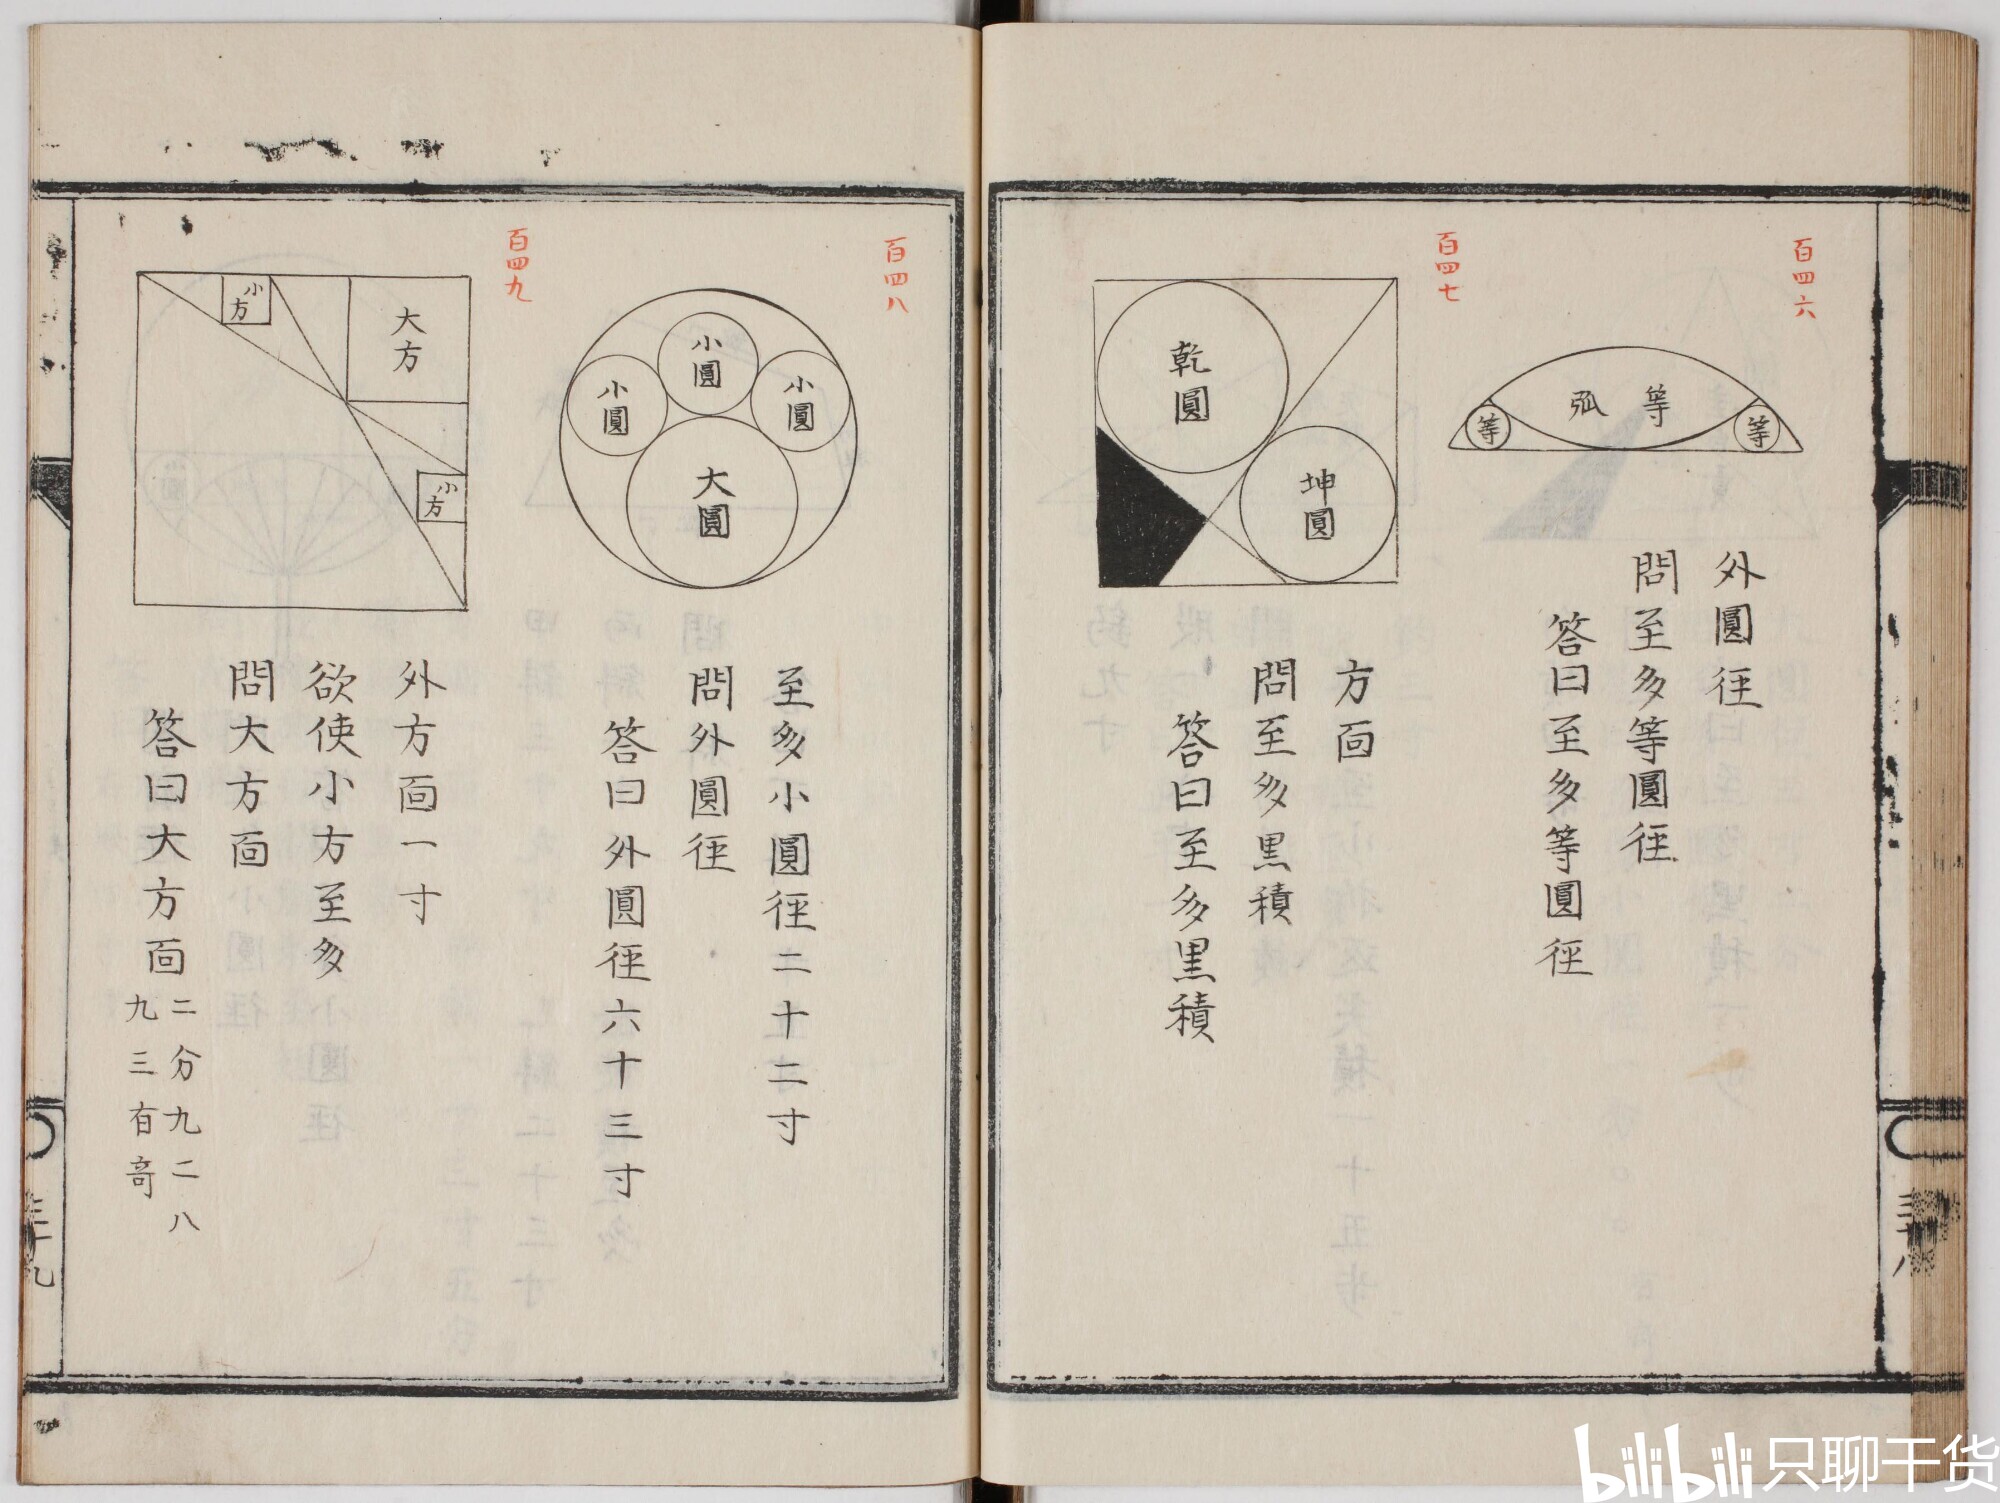 百四六
弧 等
等
等
外圓径
問至多等圓径
答曰至多等圓径
百四七
乾圓
坤圓
方面
問至多黒積
答曰至多黒積
三十八
百四八
小圓
小圓
小圓
大圓
至多小圓径二十二寸
問外圓径
答曰外圓径六十三寸
百四九
大方
小方
小方
外方面一寸
欲使小方至多
問大方面
答曰大方面二分九二八
九三有奇
三十九
bilibili 只聊干货